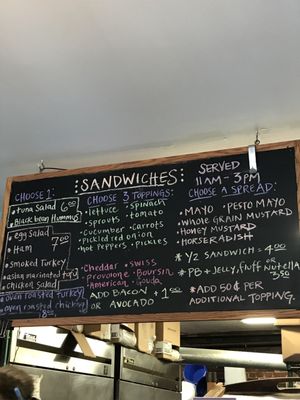 :SANDWICHES:
SERVED
11AM - 3PM
CHOOSE 1:
• tuna Salad 6.00
Black bean Hummus
• egg Salad
• Ham 7.00
• smoked Turkey
• asian marinated tofu
• chicken Salad
• oven roasted turkey
• oven roasted chicken
8.00
CHOOSE 3 TOPPINGS:
• lettuce • spinach
• sprouts • tomato
• cucumber • carrots
• pickled red onion
• Hot Peppers • Pickles
• Cheddar • swiss
• provolone • Boursin
• American • Gouda
ADD BACON + 1.00
OR AVOCADO
CHOOSE A SPREAD:
• MAYO • PESTO MAYO
• WHOLE GRAIN MUSTARD
• HONEY MUSTARD
• HORSERADISH
* 1/2 SANDWICH = 4.00
* PB + JELLY, fluff or NUTELLA
3.50
* ADD 50¢ PER
ADDITIONAL TOPPING.